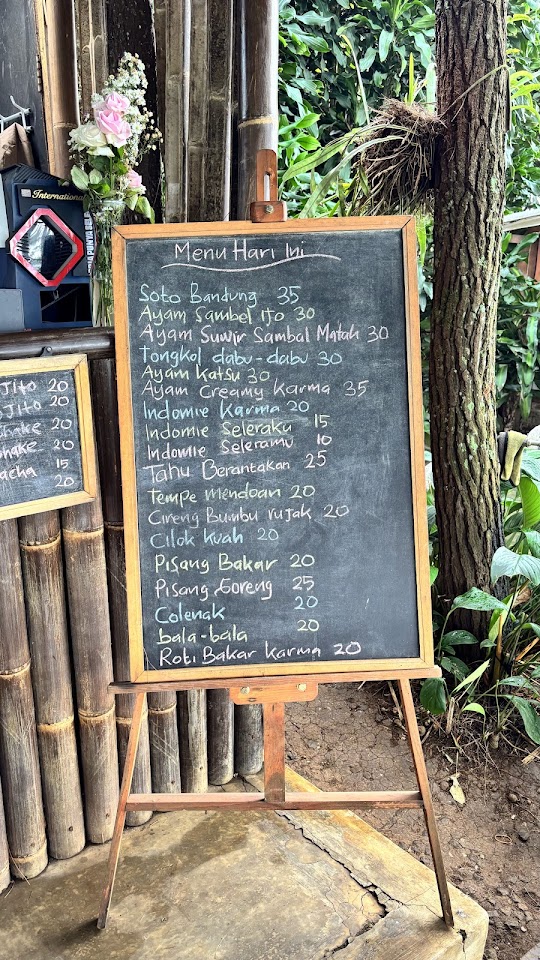 Menu Hari Ini
Soto Bandung 35
Ayam Sambel Ijo 30
Ayam Suwir Sambal Matah 30
Tongkol dabu-dabu 30
Ayam Katsu 30
Ayam Creamy Karma 35
Indomie Karma 20
Indomie Seleraku 15
Indomie Seleramu 10
Tahu Berantakan 25
Tempe mendoan 20
Cireng Bumbu rujak 20
Cilok Kuah 20
Pisang Bakar 20
Pisang Goreng 25
Colenak 20
bala-bala 20
Roti Bakar Karma 20
International
20
20
20
20
15
20